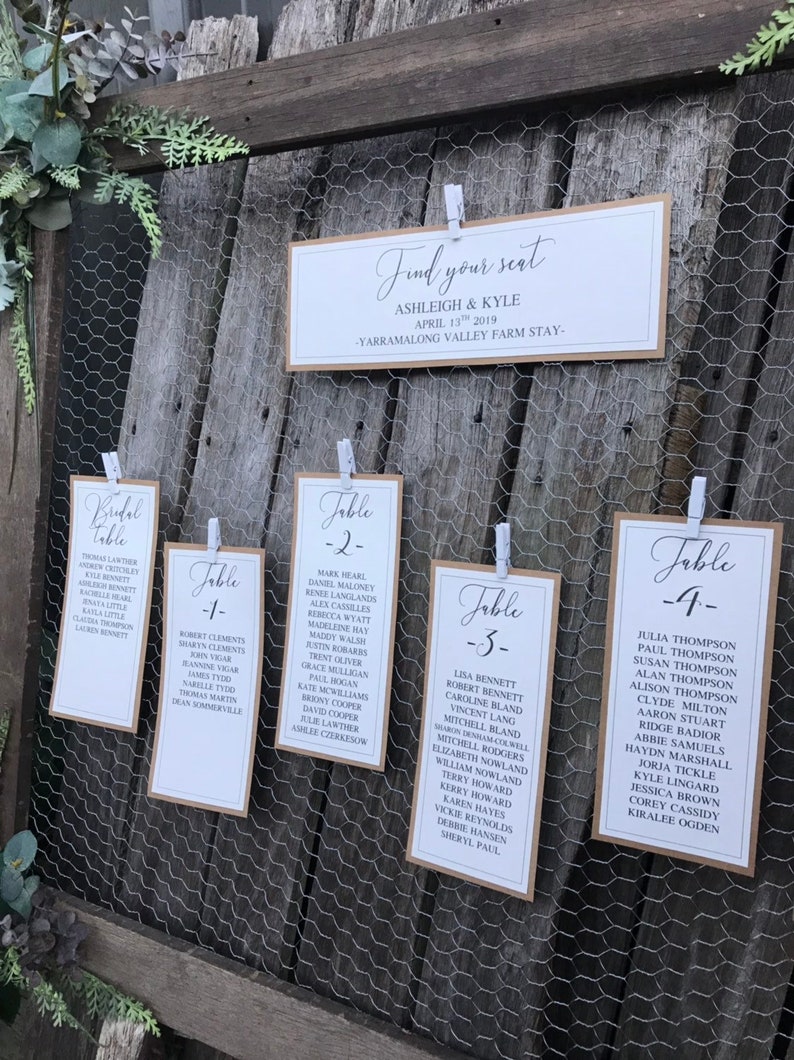 Find your seat
ASHLEIGH & KYLE
APRIL 13TH 2019
-YARRAMALONG VALLEY FARM STAY-
Bridal
table
THOMAS LAWTHER
ANDREW CRITCHLEY
KYLE BENNETT
ASHLEIGH BENNETT
RACHELLE HEARL
JENAYA LITTLE
KAYLA LITTLE
CLAUDIA THOMPSON
LAUREN BENNETT
Table
-1-
ROBERT CLEMENTS
SHARYN CLEMENTS
JOHN VIGAR
JEANNINE VIGAR
JAMES TYDD
NARELLE TYDD
THOMAS MARTIN
DEAN SOMMERVILLE
Table
-2-
MARK HEARL
DANIEL MALONEY
RENEE LANGLANDS
ALEX CASSILLES
REBECCA WYATT
MADELEINE HAY
MADDY WALSH
JUSTIN ROBARBS
TRENT OLIVER
GRACE MULLIGAN
PAUL HOGAN
KATE MCWILLIAMS
BRIONY COOPER
DAVID COOPER
JULIE LAWTHER
ASHLEE CZERKESOW
Table
-3-
LISA BENNETT
ROBERT BENNETT
CAROLINE BLAND
VINCENT LANG
MITCHELL BLAND
SHARON DENHAM-COLWELL
MITCHELL RODGERS
ELIZABETH NOWLAND
WILLIAM NOWLAND
TERRY HOWARD
KERRY HOWARD
KAREN HAYES
VICKIE REYNOLDS
DEBBIE HANSEN
SHERYL PAUL
Table
-4-
JULIA THOMPSON
PAUL THOMPSON
SUSAN THOMPSON
ALAN THOMPSON
ALISON THOMPSON
CLYDE MILTON
AARON STUART
RIDGE BADIOR
ABBIE SAMUELS
HAYDN MARSHALL
JORJA TICKLE
KYLE LINGARD
JESSICA BROWN
COREY CASSIDY
KIRALEE OGDEN